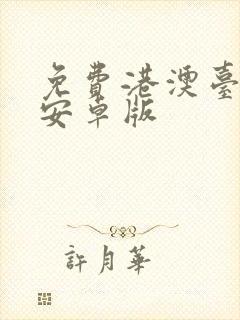 免費港澳臺
安卓版
許月華